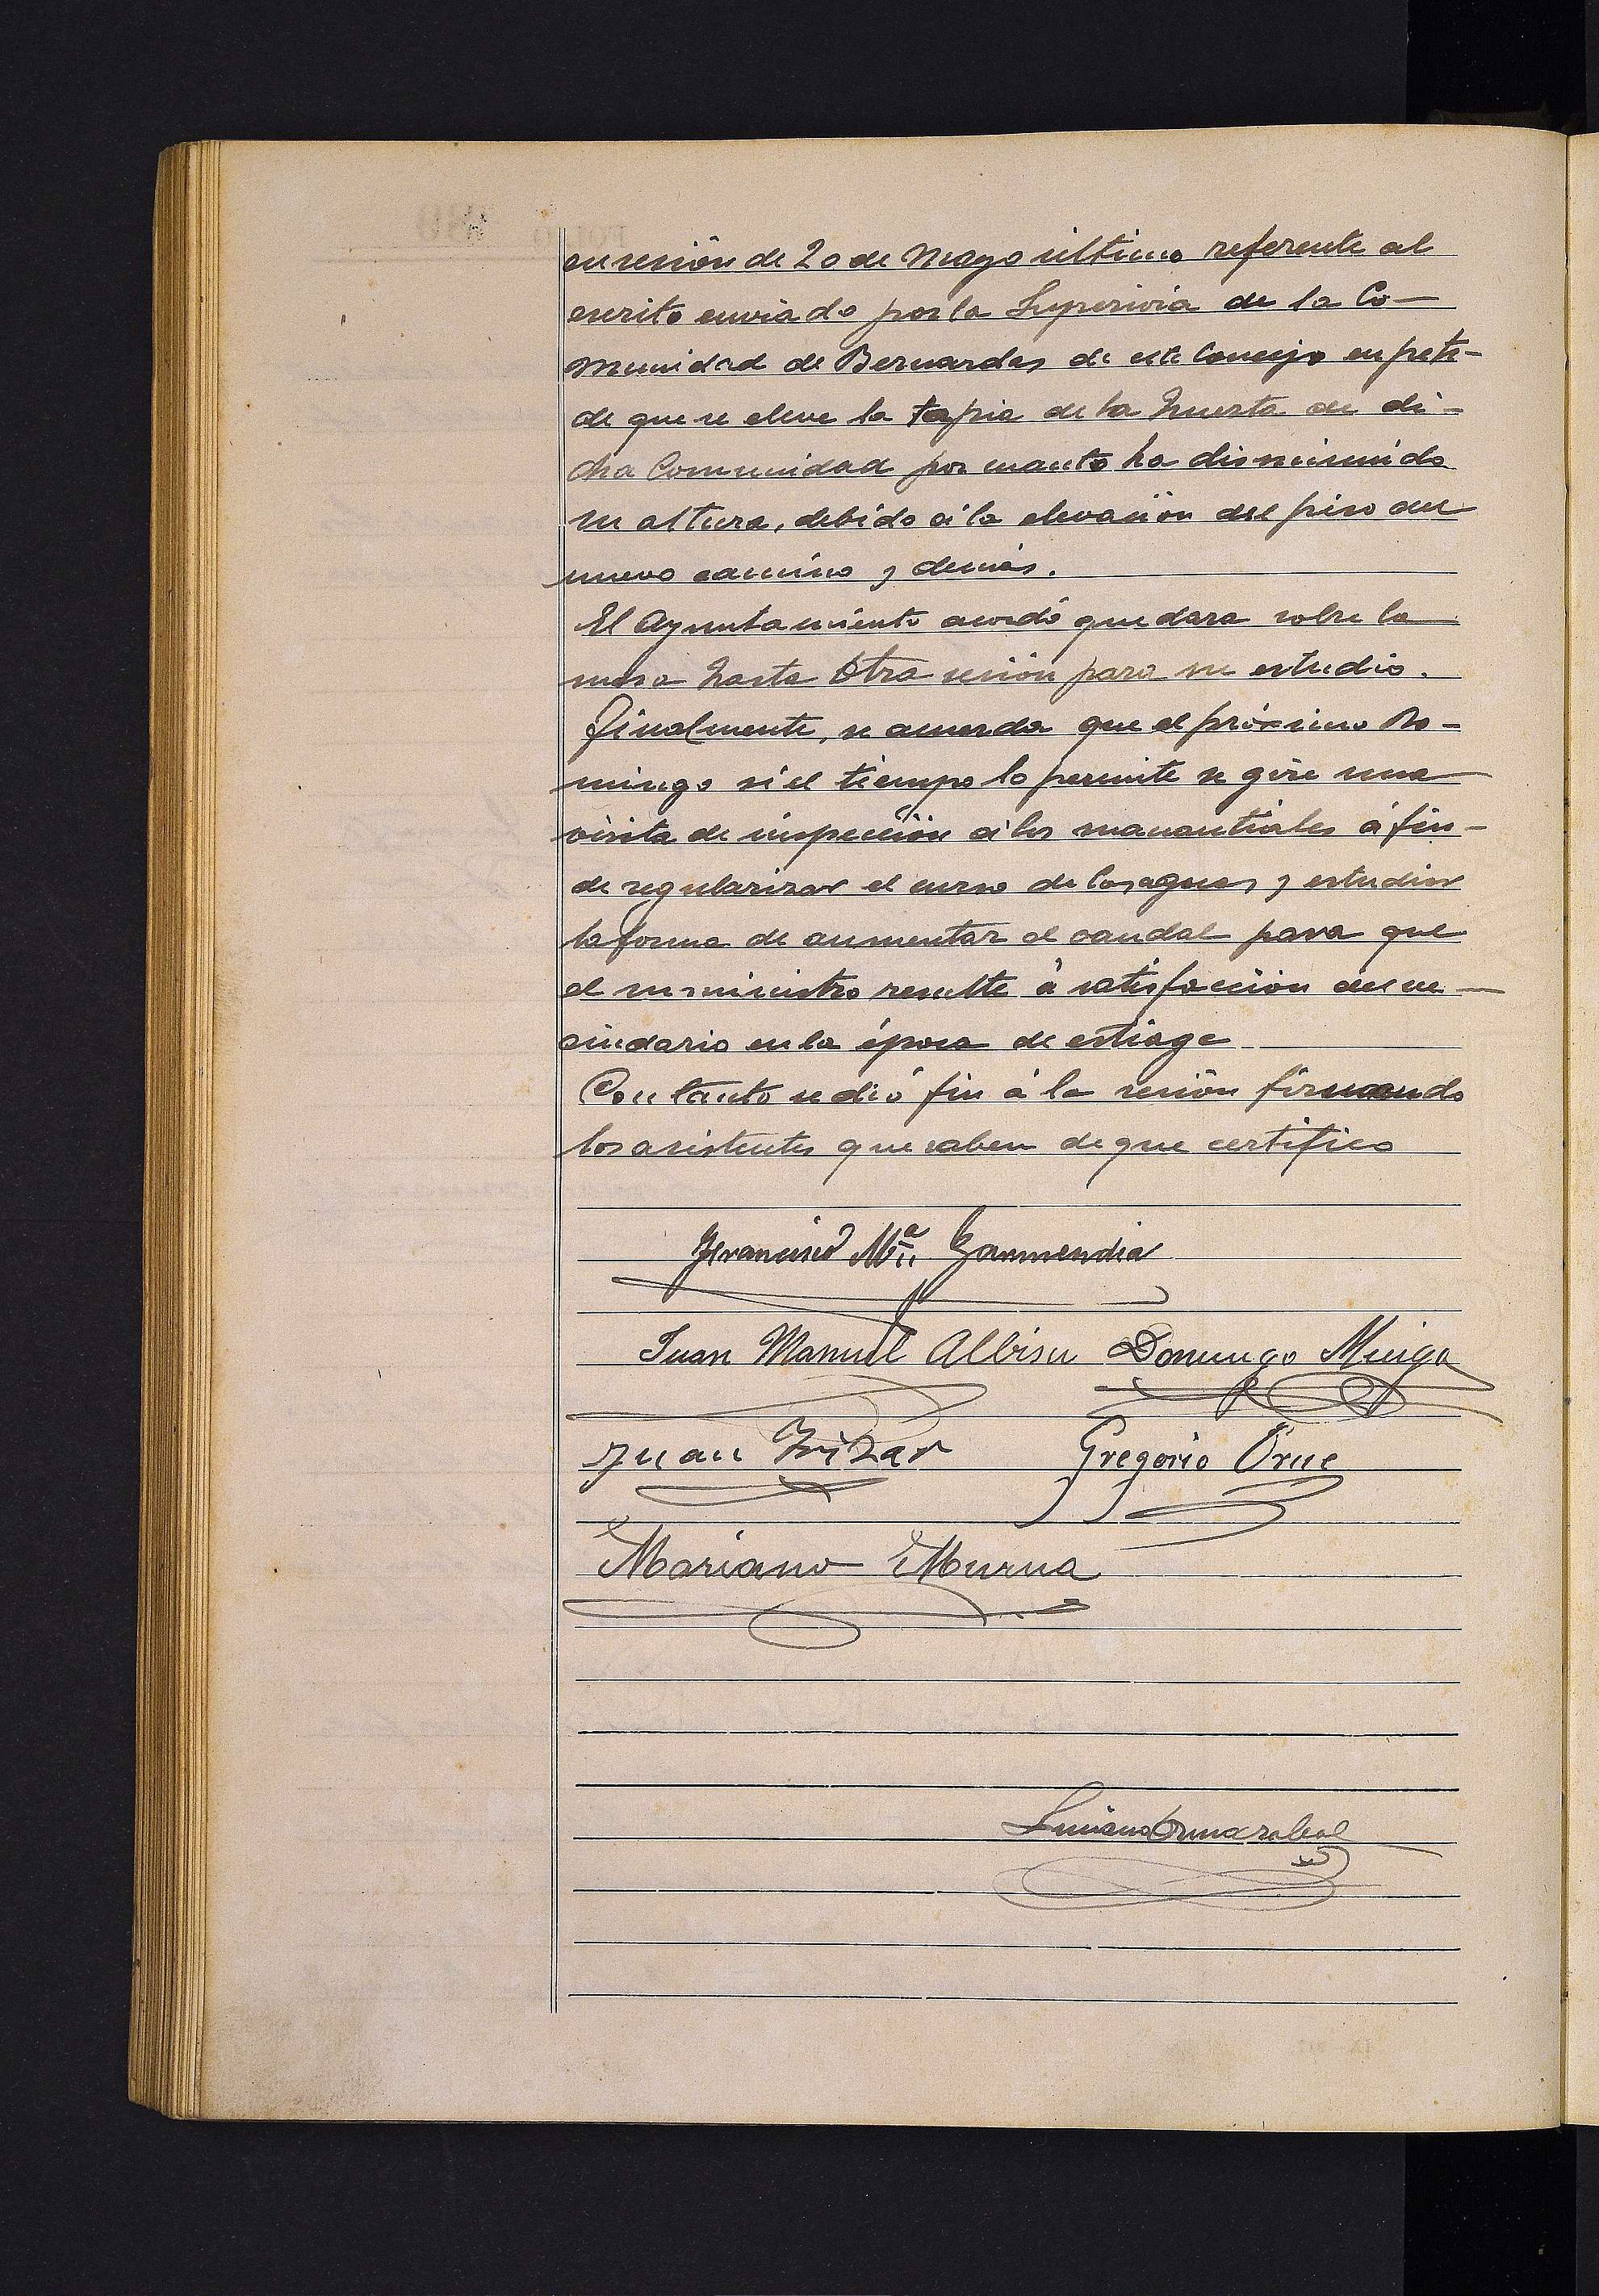 en sesión de 20 de Mayo último referente al
escrito enviado por la Superiora de la Co-
munidad de Bernardas de este Concejo en peti-
de que se eleve la tapia de la huerta de di-
cha Comunidad por cuanto ha disminuido
su altura, debido á la elevación del piso del
nuevo camino y demás.
El Ayuntamiento acordó quedara sobre la
mesa hasta otra sesión para su estudio.
Finalmente, se acuerda que el próximo Do-
mingo si el tiempo lo permite se gire una
visita de inspección á los manantiales á fin-
de regularizar el curso de las aguas y estudiar
la forma de aumentar el caudal para que
el suministro resulte á satisfacción del ve-
cindario en la época de estiage
Con tanto se dió fin á la sesión firmando
los asistentes que saben de que certifico
Francisco Mª Garmendia
Juan Manuel Albisu Domingo
Juan Irizar Gregorio Orue
Mariano Murua